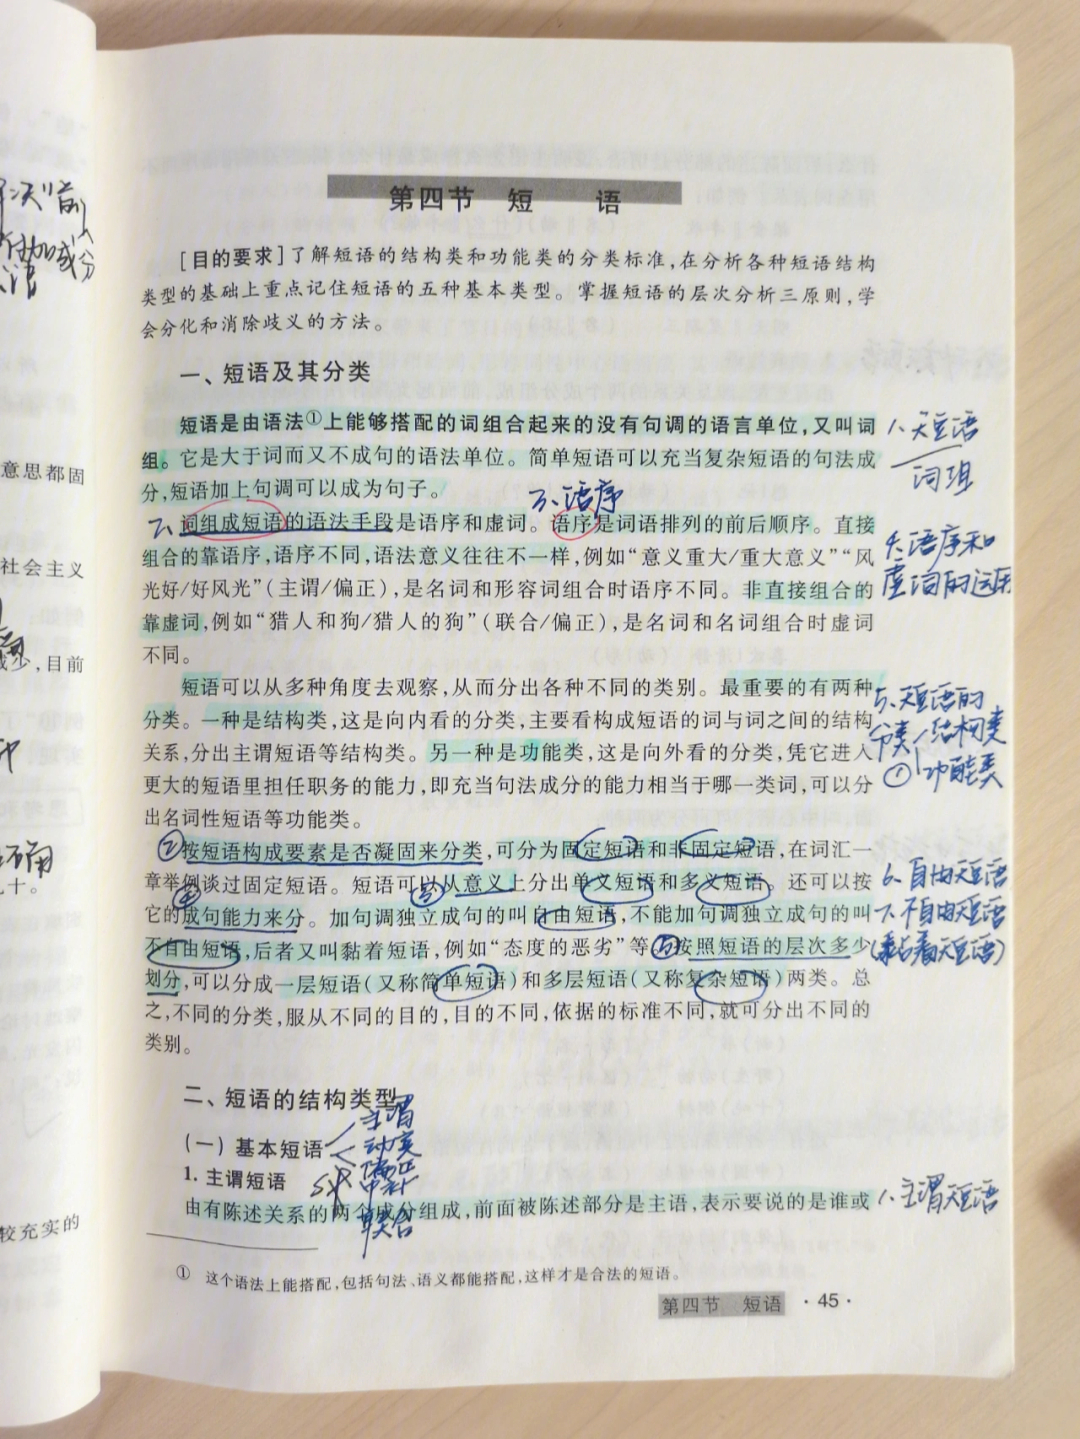 第四节 短 语
[目的要求]了解短语的结构类和功能类的分类标准,在分析各种短语结构
类型的基础上重点记住短语的五种基本类型。掌握短语的层次分析三原则,学
会分化和消除歧义的方法。
一、短语及其分类
短语是由语法①上能够搭配的词组合起来的没有句调的语言单位,又叫词
组。它是大于词而又不成句的语法单位。简单短语可以充当复杂短语的句法成
分,短语加上句调可以成为句子。
1、短语
词组
3、语序
词组成短语的语法手段是语序和虚词。语序是词语排列的前后顺序。直接
组合的靠语序,语序不同,语法意义往往不一样,例如“意义重大/重大意义”“风
光好/好风光”(主谓/偏正),是名词和形容词组合时语序不同。非直接组合的
靠虚词,例如“猎人和狗/猎人的狗”(联合/偏正),是名词和名词组合时虚词
不同。
4、语序和
虚词的运用
短语可以从多种角度去观察,从而分出各种不同的类别。最重要的有两种
分类。一种是结构类,这是向内看的分类,主要看构成短语的词与词之间的结构
关系,分出主谓短语等结构类。另一种是功能类,这是向外看的分类,凭它进入
更大的短语里担任职务的能力,即充当句法成分的能力相当于哪一类词,可以分
出名词性短语等功能类。
5、短语的
分类 结构类
① 功能类
②按短语构成要素是否凝固来分类,可分为固定短语和非固定短语,在词汇一
章举例谈过固定短语。短语可以③从意义上分出单义短语和多义短语。还可以按
它的④成句能力来分。加句调独立成句的叫自由短语,不能加句调独立成句的叫
不自由短语,后者又叫黏着短语,例如“态度的恶劣”等⑤按照短语的层次多少
划分,可以分成一层短语(又称简单短语)和多层短语(又称复杂短语)两类。总
之,不同的分类,服从不同的目的,目的不同,依据的标准不同,就可分出不同的
类别。
6、自由短语
7、不自由短语
(黏着短语)
二、短语的结构类型
(一)基本短语
主谓
动宾
偏正
中补
联合
1. 主谓短语
由有陈述关系的两个成分组成,前面被陈述部分是主语,表示要说的是谁或
1、主谓短语
① 这个语法上能搭配,包括句法、语义都能搭配,这样才是合法的短语。
第四节 短语 · 45 ·
意思都固
社会主义
减少,目前
九十。
较充实的